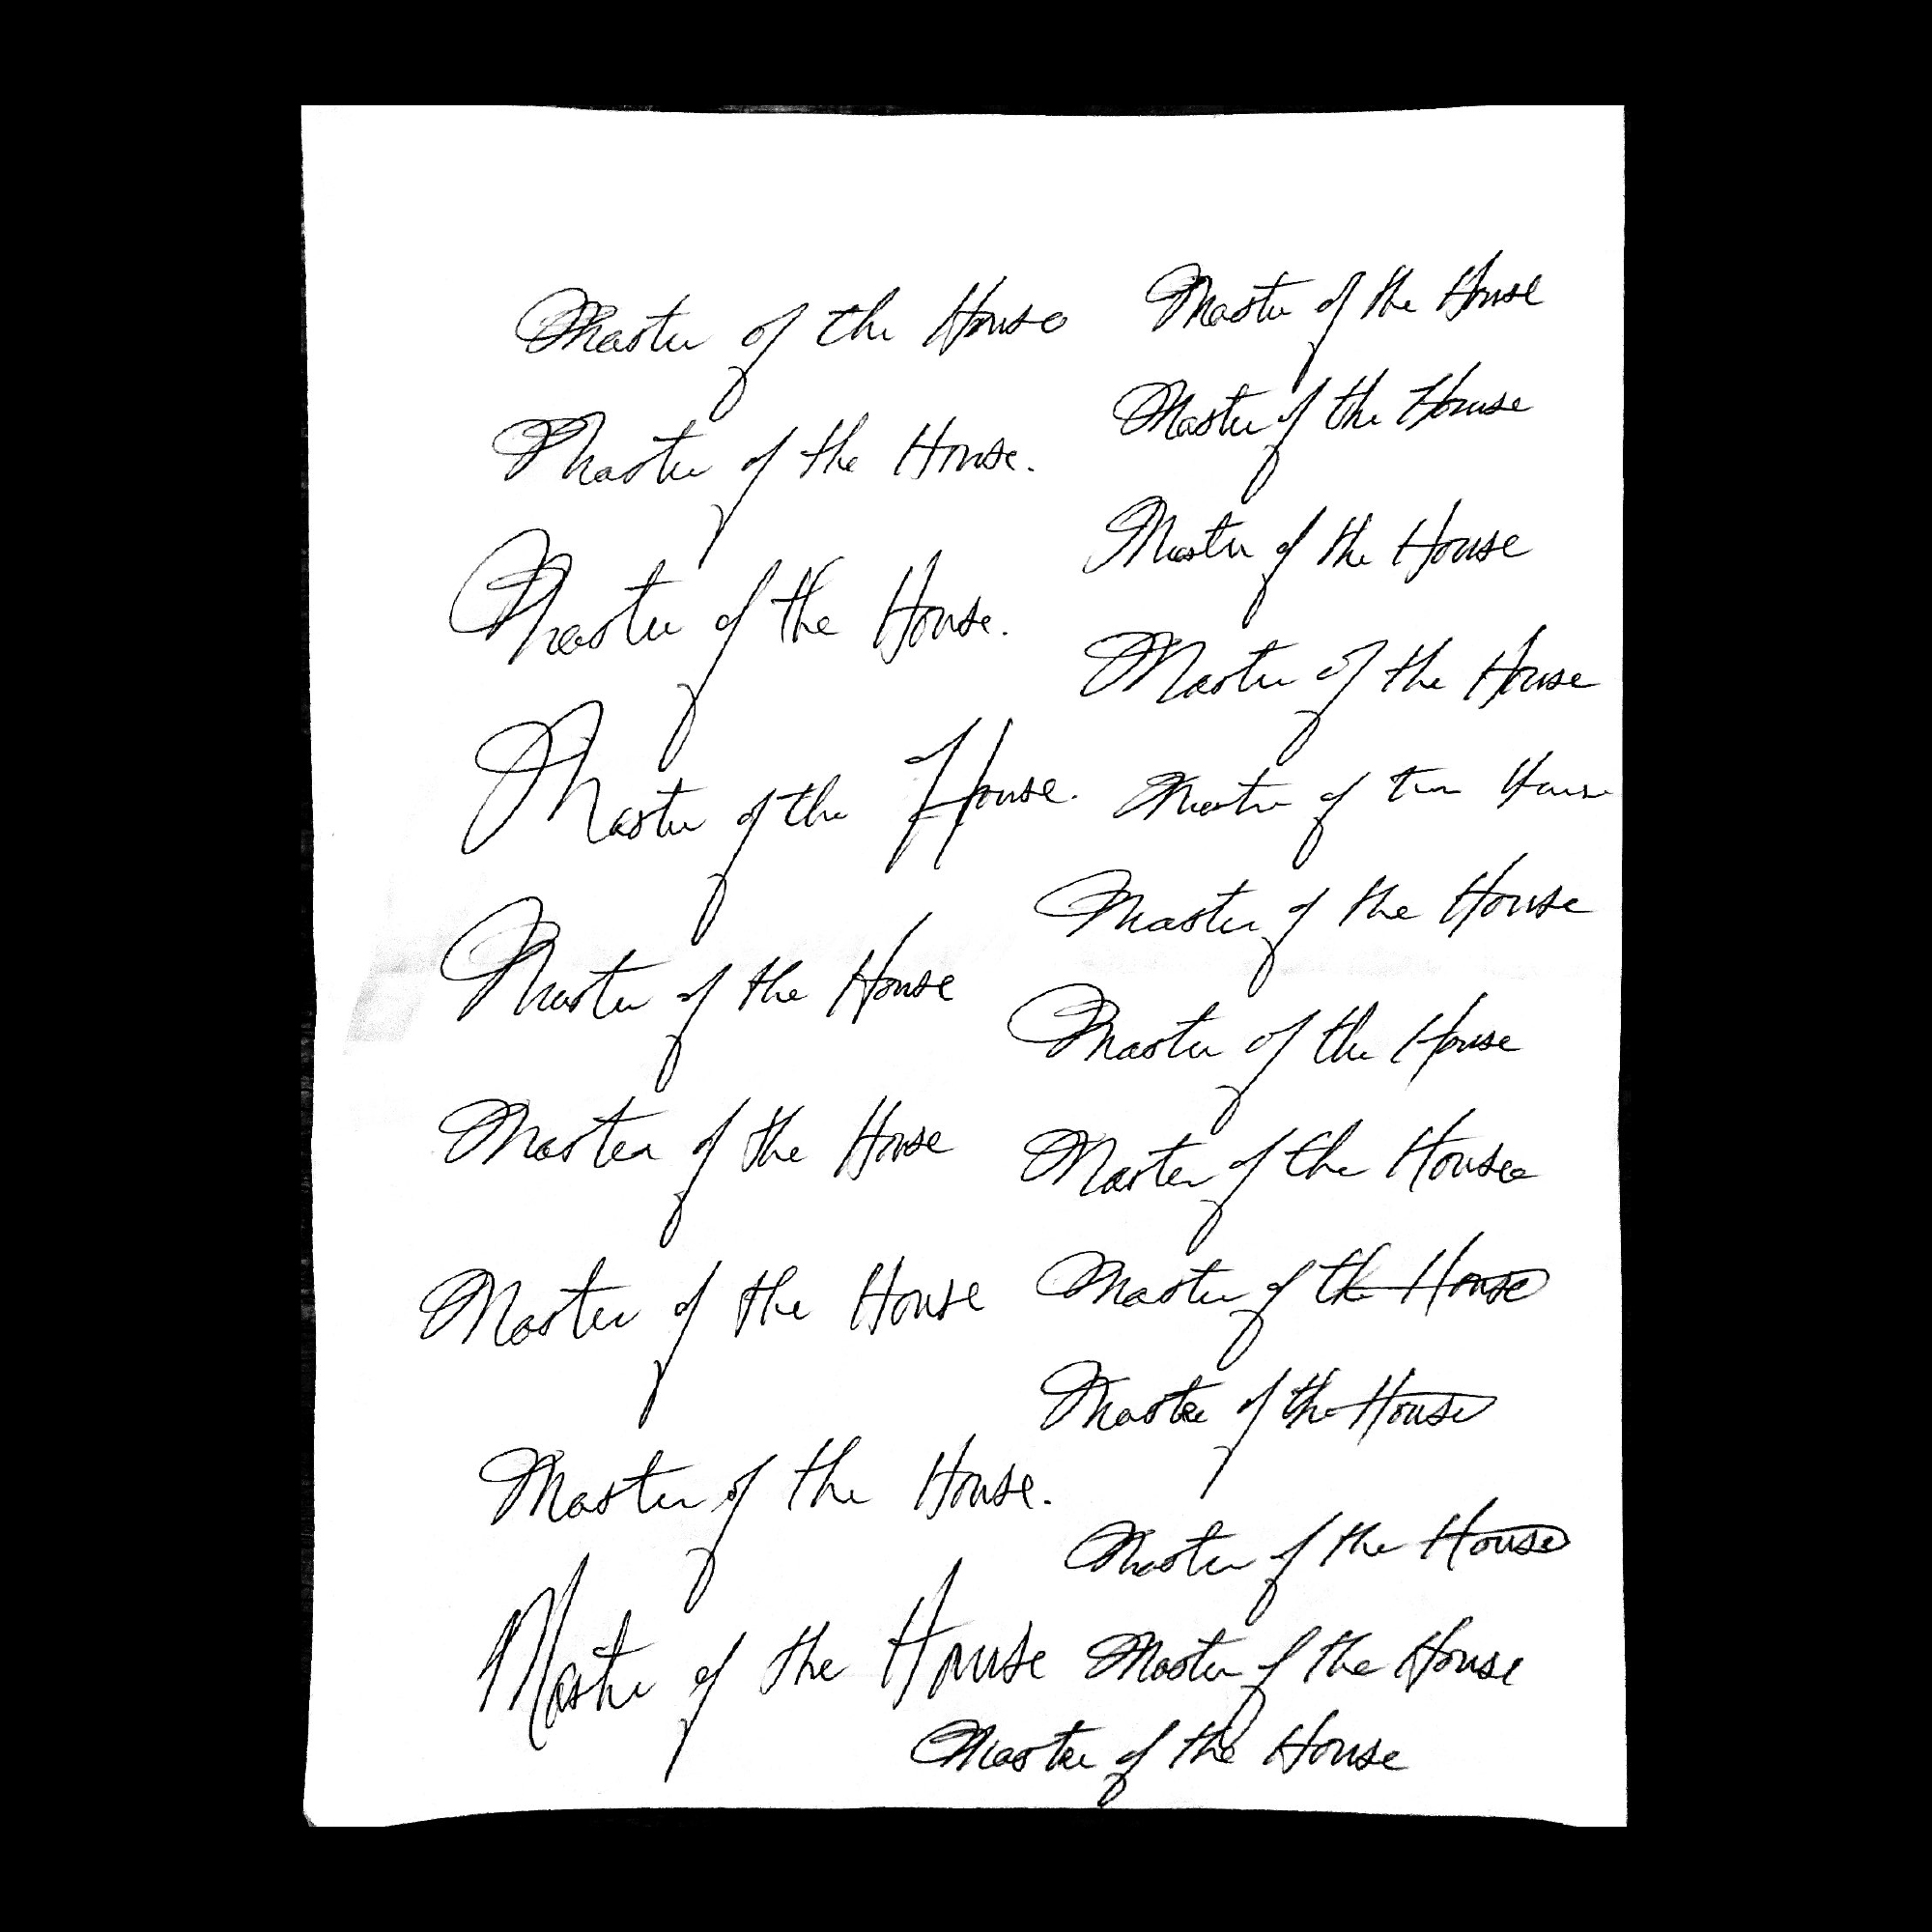 Master of the House
Master of the House.
Master of the House.
Master of the House.
Master of the House
Master of the House
Master of the House
Master of the House.
Master of the House
Master of the House
Master of the House
Master of the House
Master of the House
Master of the House
Master of the House
Master of the House
Master of the House
Master of the House
Master of the House
Master of the House
Master of the House
Master of the House